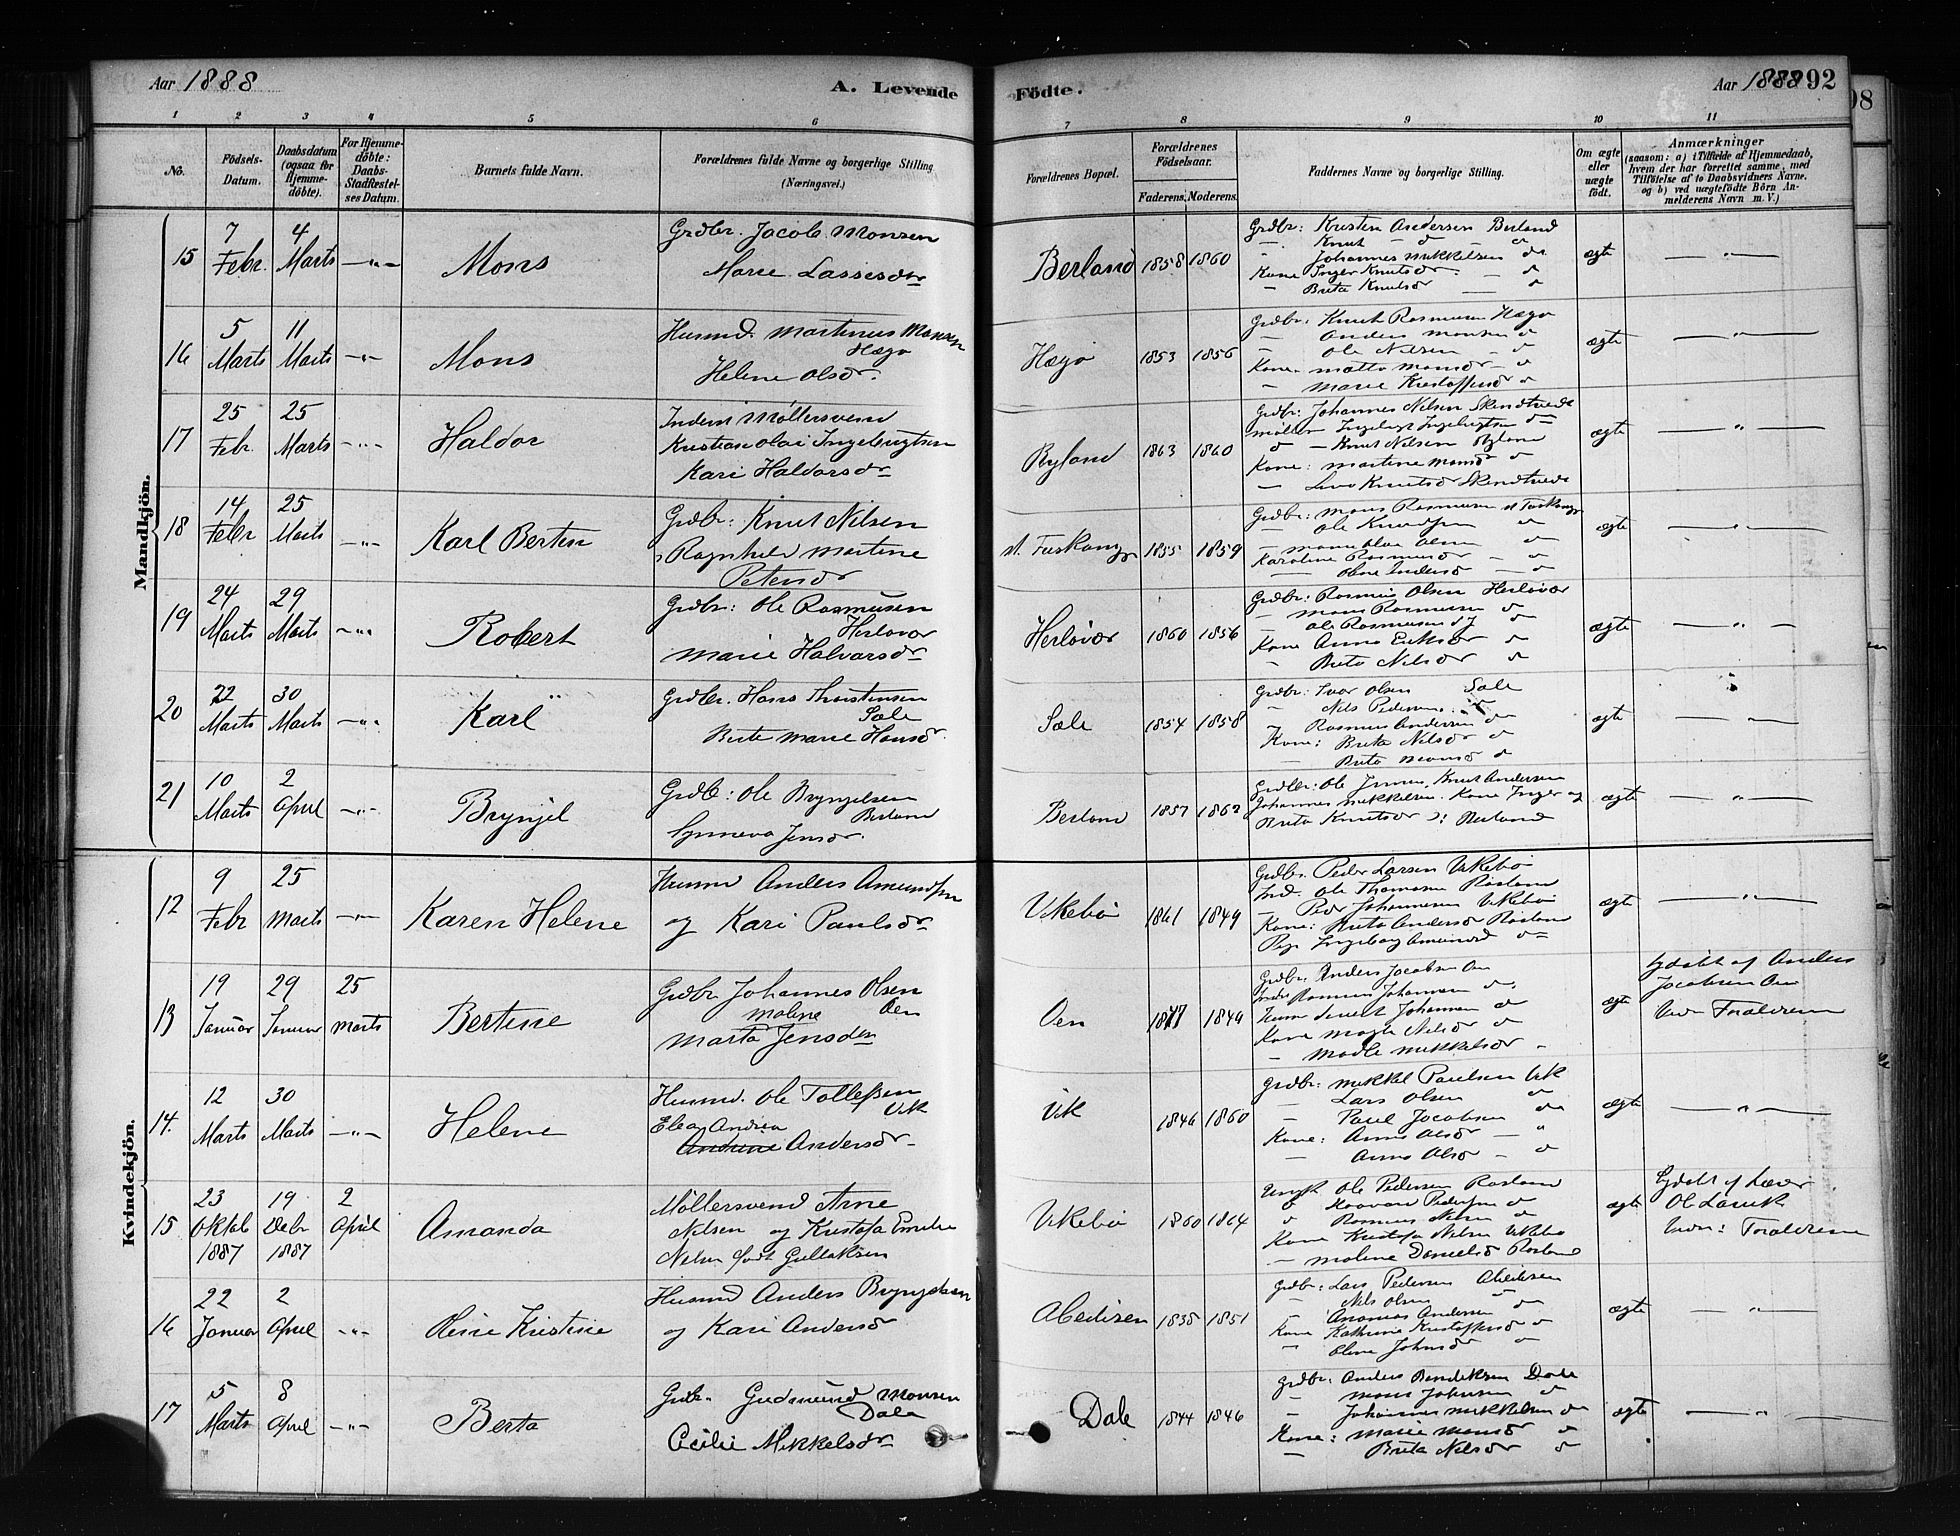 Aar 1888
A. Levende
Födte.
Aar 1888 92
98
1 2 3 4 5 6 7 8 9 10 11
No.
Födsels-
Datum.
Daabsdatum
(ogsaa for
Hjemme-
döbte).
For Hjemme-
döbte:
Daabs-
Stadfæstel-
ses Datum.
Barnets fulde Navn.
Forældrenes fulde Navne og borgerlige Stilling
(Næringsvei.)
Forældrenes Bopæl.
Forældrenes
Födselsaar.
Faderens. Moderens.
Faddernes Navne og borgerlige Stilling.
Om ægte
eller
uægte
födt.
Anmærkninger
(saasom: a) i Tilfælde af Hjemmedaab,
hvem der har forrettet samme, med
Tilföielse af to Daabsvidners Navne,
og b) ved uægtefödte Börn An-
melderens Navn m. V.)
Mandkjön.
15
7
Febr.
4
Marts
—„—
Mons
Grdbr. Jacob Monsen
Marie Lassesdtr
Berland
1858 1860
Grdbr: Kristen Andersen Berland
- Knut - d - d
- Johannes Mikkelsen do
Kone Inger Knutsdr - d
- Brita Knutsdr — d
ægte
— „ —
16
5
Marts
11
Marts
—„—
Mons
Husmd. Martinus Monsen
Hægø
Helene Olsdr.
Hægø
1853 1856
Grdbr. Knut Rasmusen Hægø
- Anders Monsen d
- Ole Nilsen - d
Kone. Matta Monsdr - d
- Marie Kristoffersdr d
ægte
— „ —
17
25
Febr.
25
Marts
—„—
Haldor
Inderst Møllersvend
Kristian Olai Ingebrigtsen
Kari Haldorsdr
Ryland
1863 1860
Grdbr: Johannes Nilsen Skendtveds
Møller Ingebrigt Ingebrigtsen do
d - Knut Nilsen Ryland
Kone: Martine Monsdr d
- Knutsdr Skendtveds
ægte
— „ —
18
14
Febr
25
Marts
—„—
Karl Bertin
Grdbr: Knut Nilsen
Ragnhild Martine
Petersdr
1855 1859
Grdbr: Mons Rasmusen
- Ole Knudsen d
- Olsen d
Karoline Rasmusdr - d
- Oline Andersd - d
ægte
— „ —
19
24
Marts
29
Marts
—„—
Robert
Grdbr: Ole Rasmusen
Herløvær
Marie Halvorsdr
Herløvær
1860 1856
Grdbr: Rasmus Olsen Herløvær
- Mons Rasmusen d
- Ole Rasmusen d
Kone Anna Eriksdr d
- Brita Nilsdr d
ægte
— „ —
20
22
Marts
30
Marts
—„—
Karl
Grdbr. Hans Thorstensen
Sæle
Brite Marie Hansdr.
Sæle
1854 1858
Grdbr: Ivar Olsen Sæle
- Nils Pedersen d
- Rasmus Andersen d
Kone: Brita Nilsdr d
- Brita Monsdr d
ægte
— „ —
21
10
Marts
2
April
—„—
Brynjel
Grdb: Ole Brynjelsen
Berland
Synneva Jensdr.
Berland
1857 1862
Grdbr: Ole Jensen, Knut Andersen
Johannes Mikkelsen. Kone Inger og
Brita Knutsdr : Berland
ægte
— „ —
Kvindekjön.
12
9
Febr
25
Marts
—„—
Karen Helene
Husmd Anders Amundsen
og Kari Paulsdr
Vikebø
1861 1849
Grdbr. Peder Larsen Vikebø
Ind. Ole Thomasen Rosland
- Peder Johannesen Vikebø
Kone: Brita Andersdr Rosland
Pige Ingeborg Amundsd do
ægte
— „ —
13
19
Januar
29
Januar
25
Marts
Bertine
Grdbr Johannes Olsen
Malene Oen
Marta Jensdtr
Oen
1847 1849
Grdbr. Anders Jacobsen Oen
Rasmus Johannesen d
Johannesen do
Kone Magli Nilsdr d
- Madle Mikkelsdr -
ægte
hjdøbt af Anders
Jacobsen Oen
Vidn: Forældrene
14.
12
Marts
30
Marts
—„—
Helene
Husmd. Ole Tollefsen
Vik
Elea Andrea
Andrine Andersdr
Vik
1846 1860
Grdbr: Mikkel Paulsen Vik
- Lars Olsen d
- Paul Jacobsen do
Kone: Anna Olsdr - "
- Anna Olsdr - d
ægte
— „ —
15
23
Oktob
1887
19
Debr
1887
2
April
Amanda
Møllersvend Arne
Nilsen og Kristofa Emilie
Nilsen født Gullaksen
Vikebø
1860 1864
Ungk Ole Pedersen Rosland
d Haavard Pedersen d
d Rasmus Nilsen d
Kone Kristofa Nilsen Vikebø
- Malene Danielsd Rosland
ægte
hjdøbt af Lærer
Ol Larvik
Vidn: Forældrene
16
22
Januar
2
April
—„—
Oline Kristine
Husmd Anders Brynjelsen
og Kari Andersdr
1838 1851
Grdbr: Lars Pedersen
- Nils Olsen
- Andersen d
Kone Kathrine Kristoffersd d
- Oline Johnsdr -
ægte
— „ —
17
5
Marts
8
April
—„—
Berta
Grdbr. Gudmund Monsen
Dale
Cecilie Mikkelsdr
Dale
1844 1846
Grdbr: Anders Bendiksen Dale
- Mons Johnsen d
- Johannes Mikkelsen do
Kone: Marie Monsdr d
- Brita Nilsdr d
ægte
— „ —